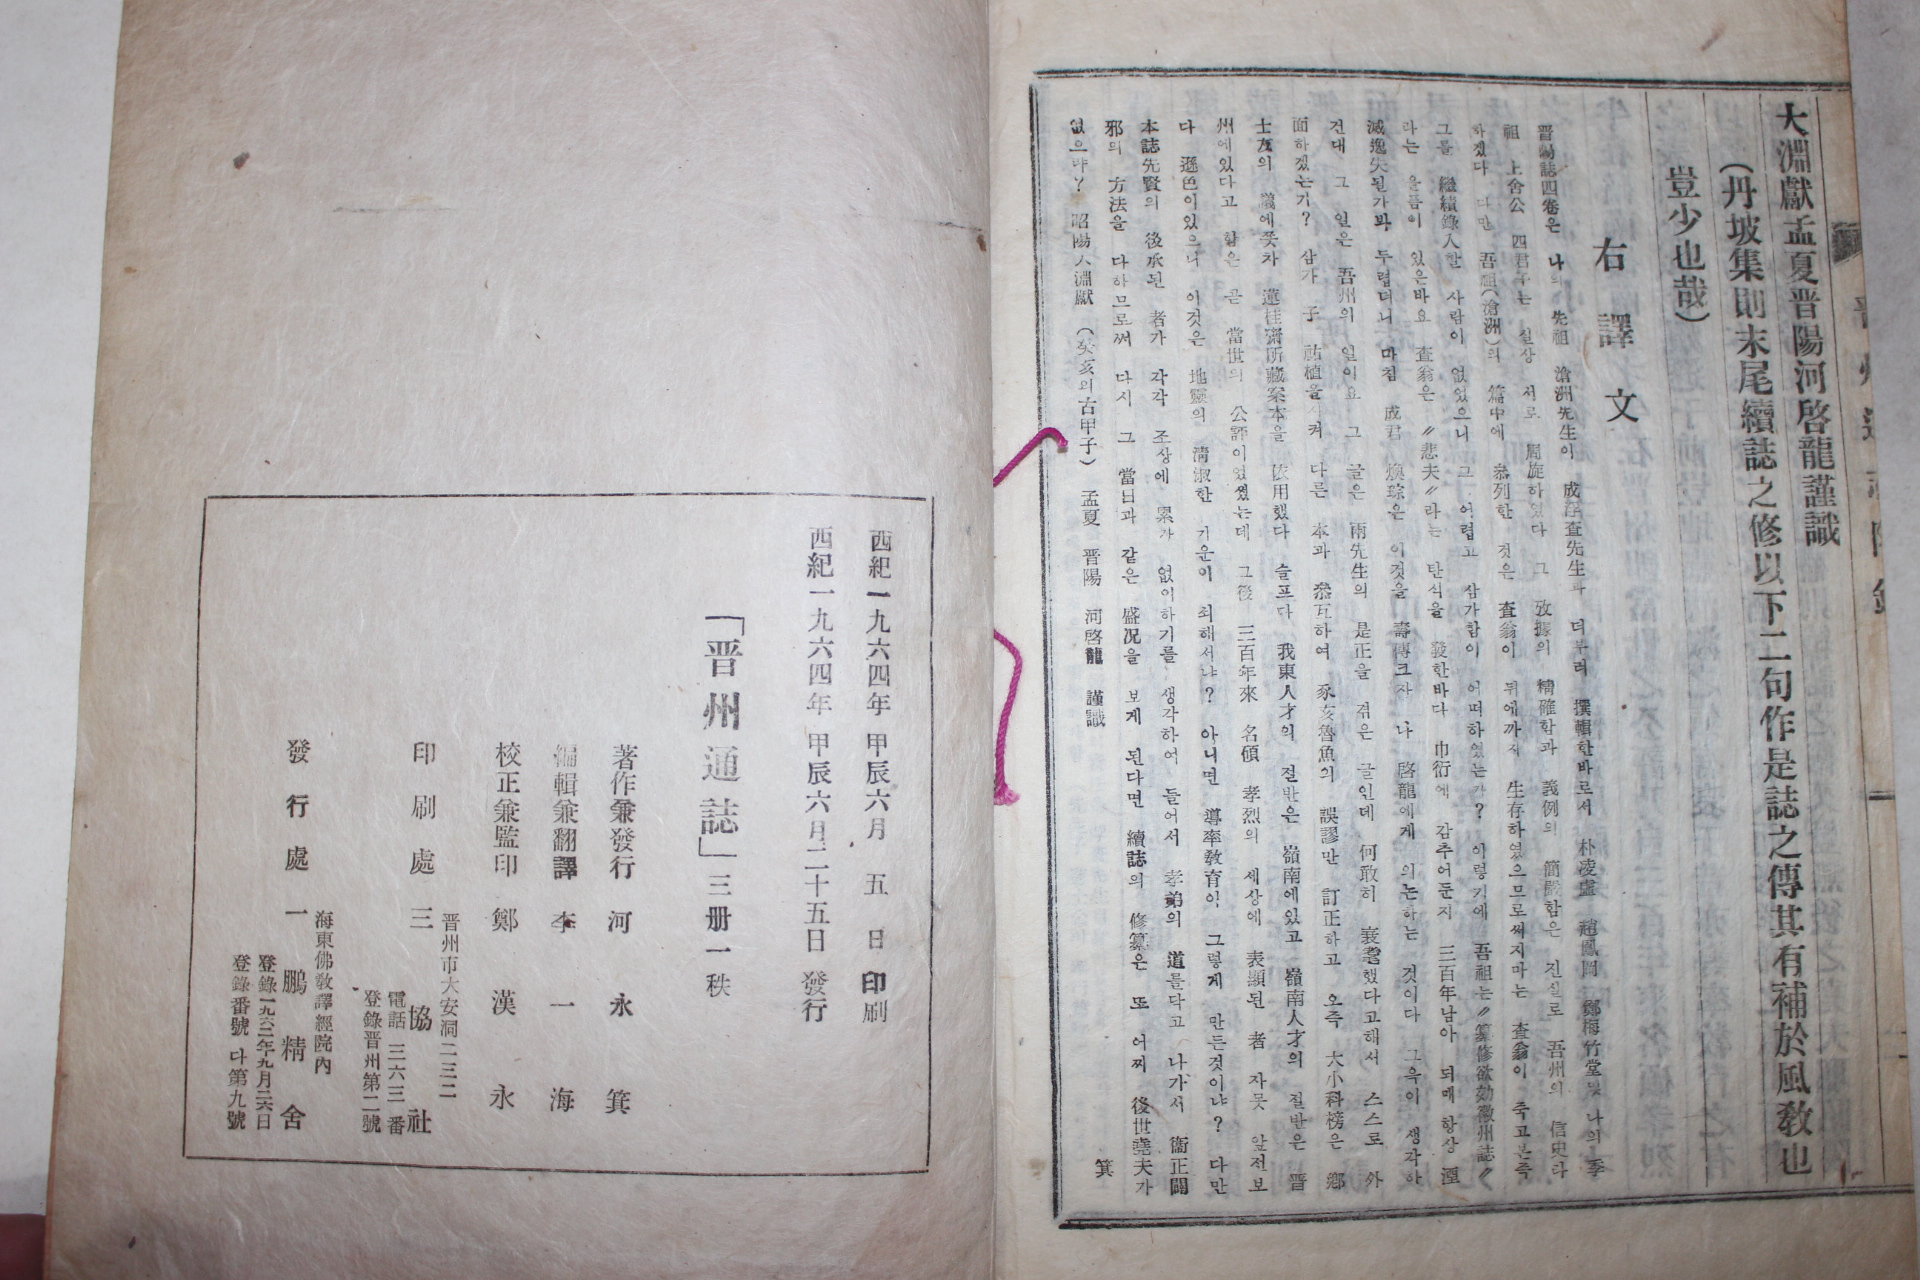 大淵獻孟夏晋陽河啓龍謹識
(丹坡集則末尾續誌之修以下二句作是誌之傳其有補於風敎也
豈少也哉)
右譯文
晋陽誌四卷은 나의 先祖 滄洲先生이 成浮査先生과 더부러 撰輯한바로서 朴凌虛 趙鳳岡 鄭梅竹堂및 나의 季
祖 上舍公 四君子는 실상 서로 周旋하였다 그 攷據의 精確함과 義例의 簡嚴함은 진실로 吾州의 信史라
하겠다 다만 吾祖(滄洲)의 篇中에 叅列한 것은 査翁이 뒤에까지 生存하였으므로써지마는 査翁이 죽고본즉
그를 繼續錄入할 사람이 없었으니 그 어렵고 삼가함이 어떠하였는가? 이렇기에 吾祖는〃纂修欲効徽州誌〃
라는 읊픔이 있은바요 査翁은〃悲夫〃라는 탄식을 發한바다 巾衍에 감추어둔지 三百年남아 되매 항상 湮
滅逸失될가봐 두렵더니 마침 成君 煥琮은 이것을 壽傳코자 나 啓龍에게 의논하는 것이다 그윽이 생각하
건대 그 일은 吾州의 일이요 그 글은 兩先生의 是正을 겪은 글인데 何敢히 衰耄했다고해서 스스로 外
面하겠는가? 삼가 子 祜植을시켜 다른 本과 叅互하여 豕亥魯魚의 誤謬만 訂正하고 오즉 大小科榜은 鄕
士友의 議에쫓차 蓮桂齋所藏案本을 依用했다 슬프다 我東人才의 절반은 嶺南에있고 嶺南人才의 절반은 晋
州에있다고 함은 곧 當世의 公評이었었는데 그後 三百年來 名碩 孝烈의 세상에 表顯된 者 자못 앞전보
다 遜色이있으니 이것은 地靈의 淸淑한 기운이 쇠해서냐? 아니면 導率敎育이 그렇게 만든것이냐? 다만
本誌先賢의 後承된 者가 각각 조상에 累가 없이하기를 생각하여 들어서 孝弟의 道를닥고 나가서 衞正闢
邪의 方法을 다하므로써 다시 그 當日과 같은 盛况을 보게 된다면 續誌의 修纂은 또 어찌 後世堯夫가
없으랴? 昭陽大淵獻 (癸亥의古甲子) 孟夏 晋陽 河啓龍 謹識
箕
西紀一九六四年 甲辰六月 五 日 印刷
西紀一九六四年 甲辰六月二十五日 發行
「晋州通誌」三册一秩
著作兼發行 河 永 箕
編輯兼翻譯 李 一 海
校正兼監印 鄭 漢 永
晋州市大安洞二三二
印刷處 三 協 社
電話 三六三 番
登錄晋州第二號
海東佛敎譯經院內
發行處 一 鵬 精 舍
登錄一九六二年九月二六日
登錄番號 다第九號